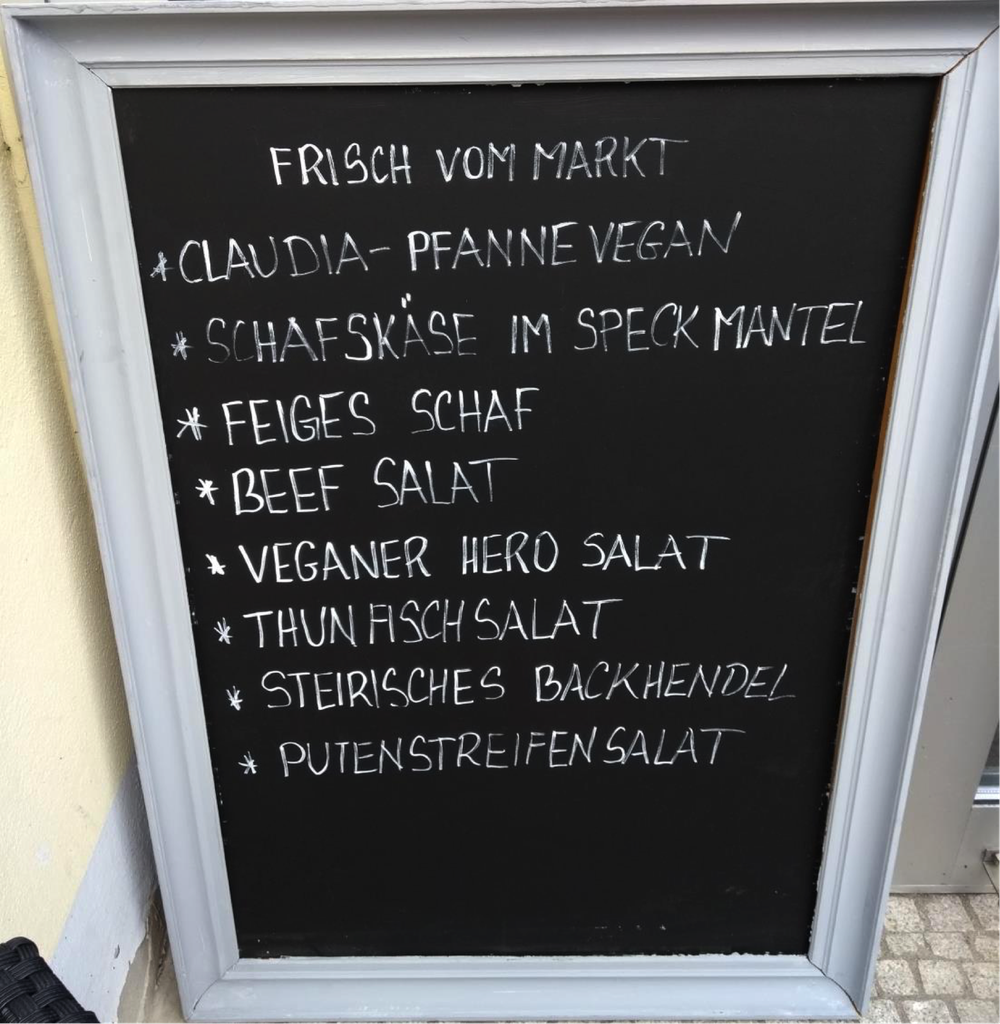 FRISCH VOM MARKT
* CLAUDIA-PFANNE VEGAN
* SCHAFSKÄSE IM SPECKMANTEL
* FEIGES SCHAF
* BEEF SALAT
* VEGANER HERO SALAT
* THUNFISCHSALAT
* STEIRISCHES BACKHENDEL
* PUTENSTREIFENSALAT